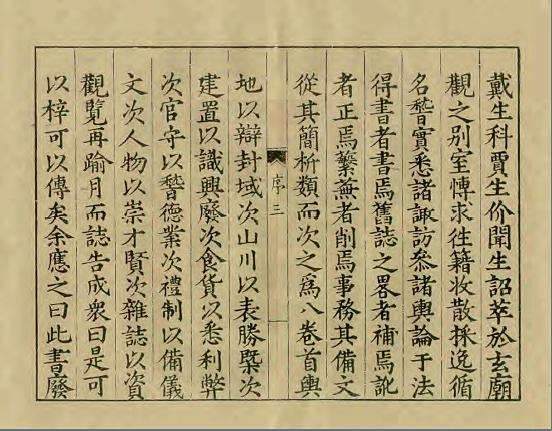 戴生科賈生价聞生詔萃於玄廟
觀之别室博求往籍收散採逸循
名稽實悉諸諏訪參諸輿論于法
得書者書焉舊誌之畧者補焉訛
者正焉蘩蕪者削焉事務其備文
從其簡析類而次之爲八卷首輿
序三
地以辯封域次山川以表勝槩次
建置以識興廢次食貨以悉利弊
次官守以稽德業次禮制以備儀
文次人物以崇才賢次雜誌以資
觀覽再踰月而誌告成衆曰是可
以梓可以傳矣余應之曰此書廢